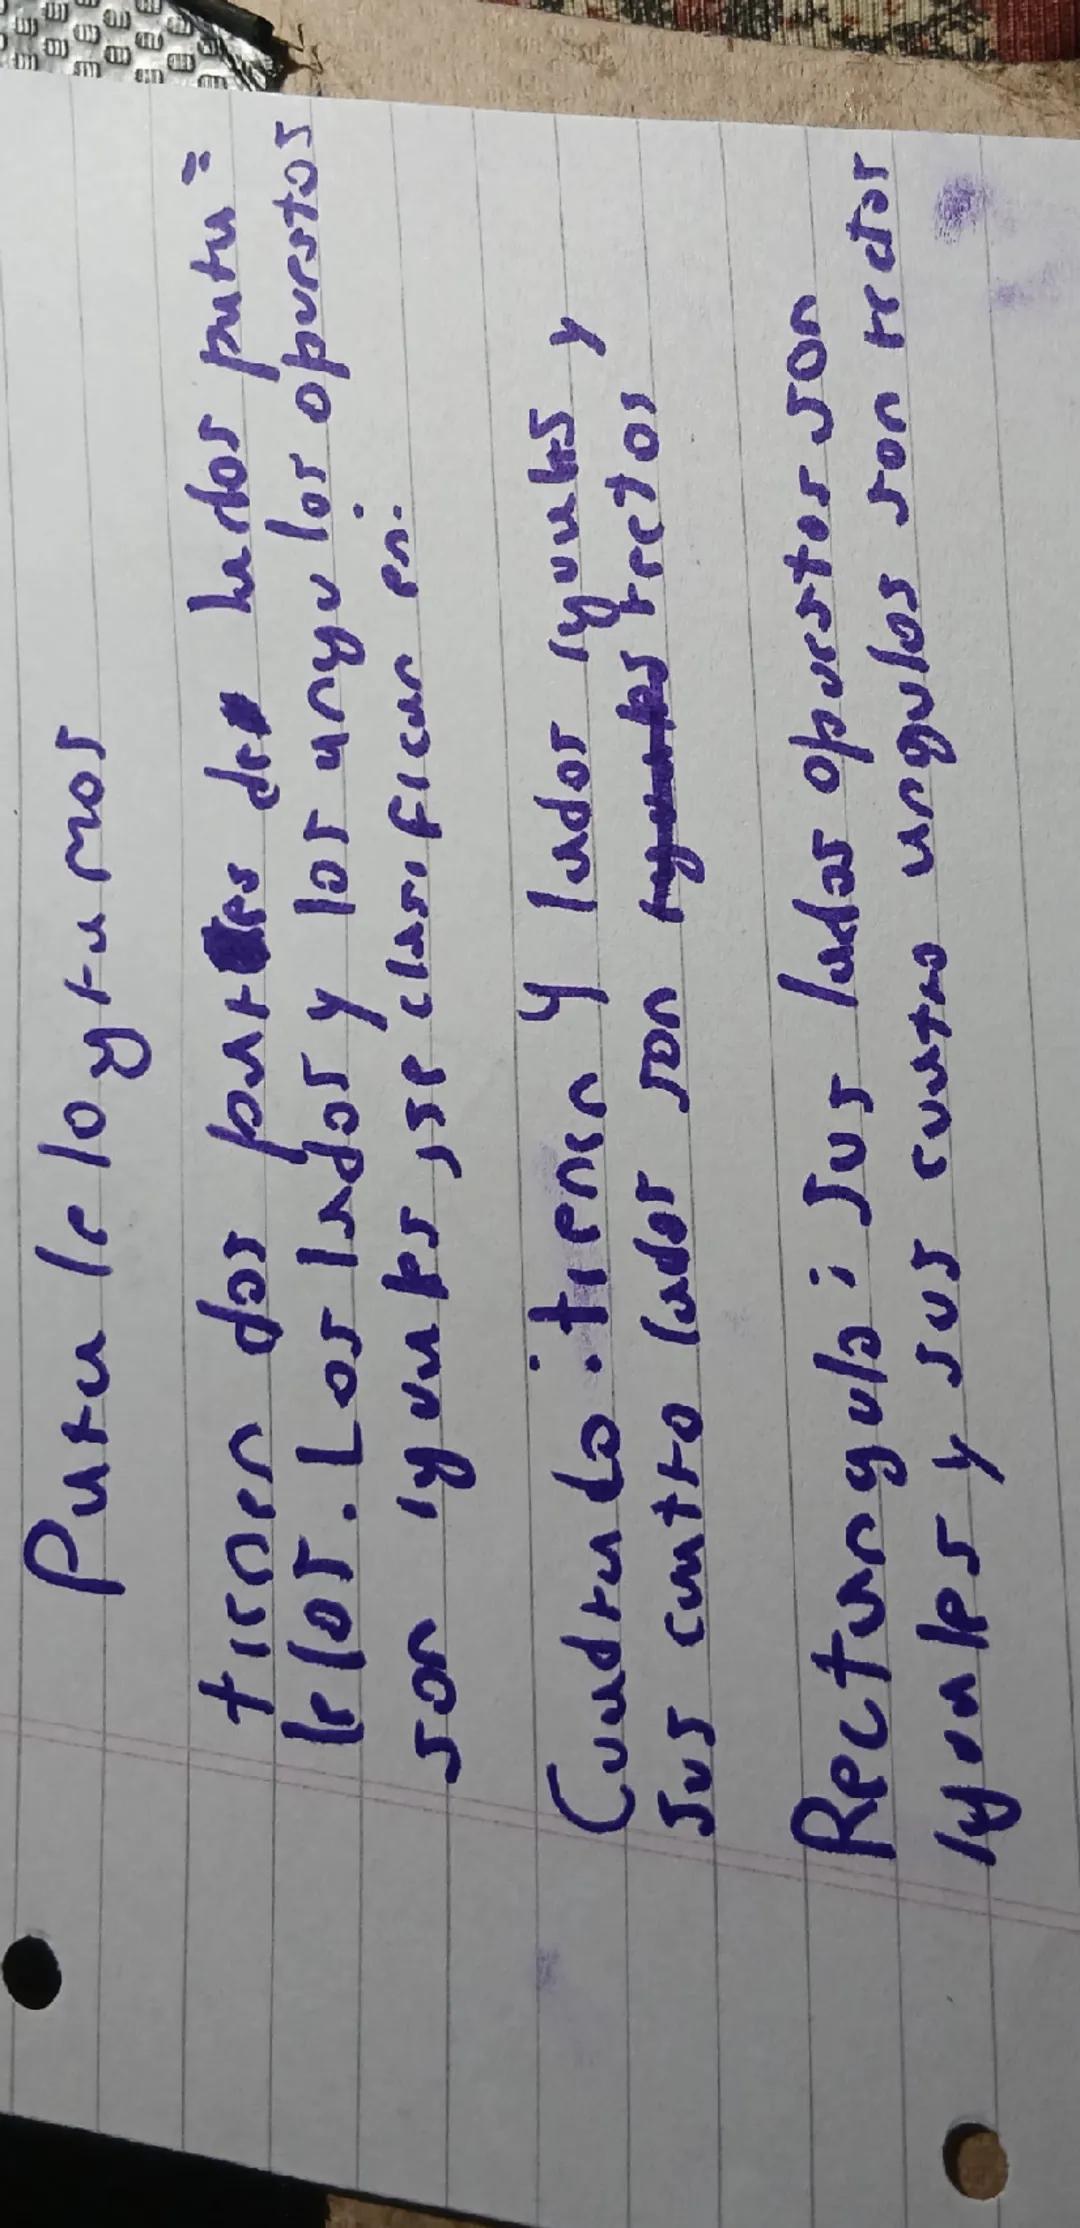 Paralelogramos
tienen dos pares de lados para=
lelos. Los lados y los angulos opuestos
son iguales, se clasifican en:
Cuadrado: tienen 4 lados iguales y
sus cuatro lados son rectos
Rectangulo: sus lados opuestos son
iguales y sus cuatro angulos son rectos